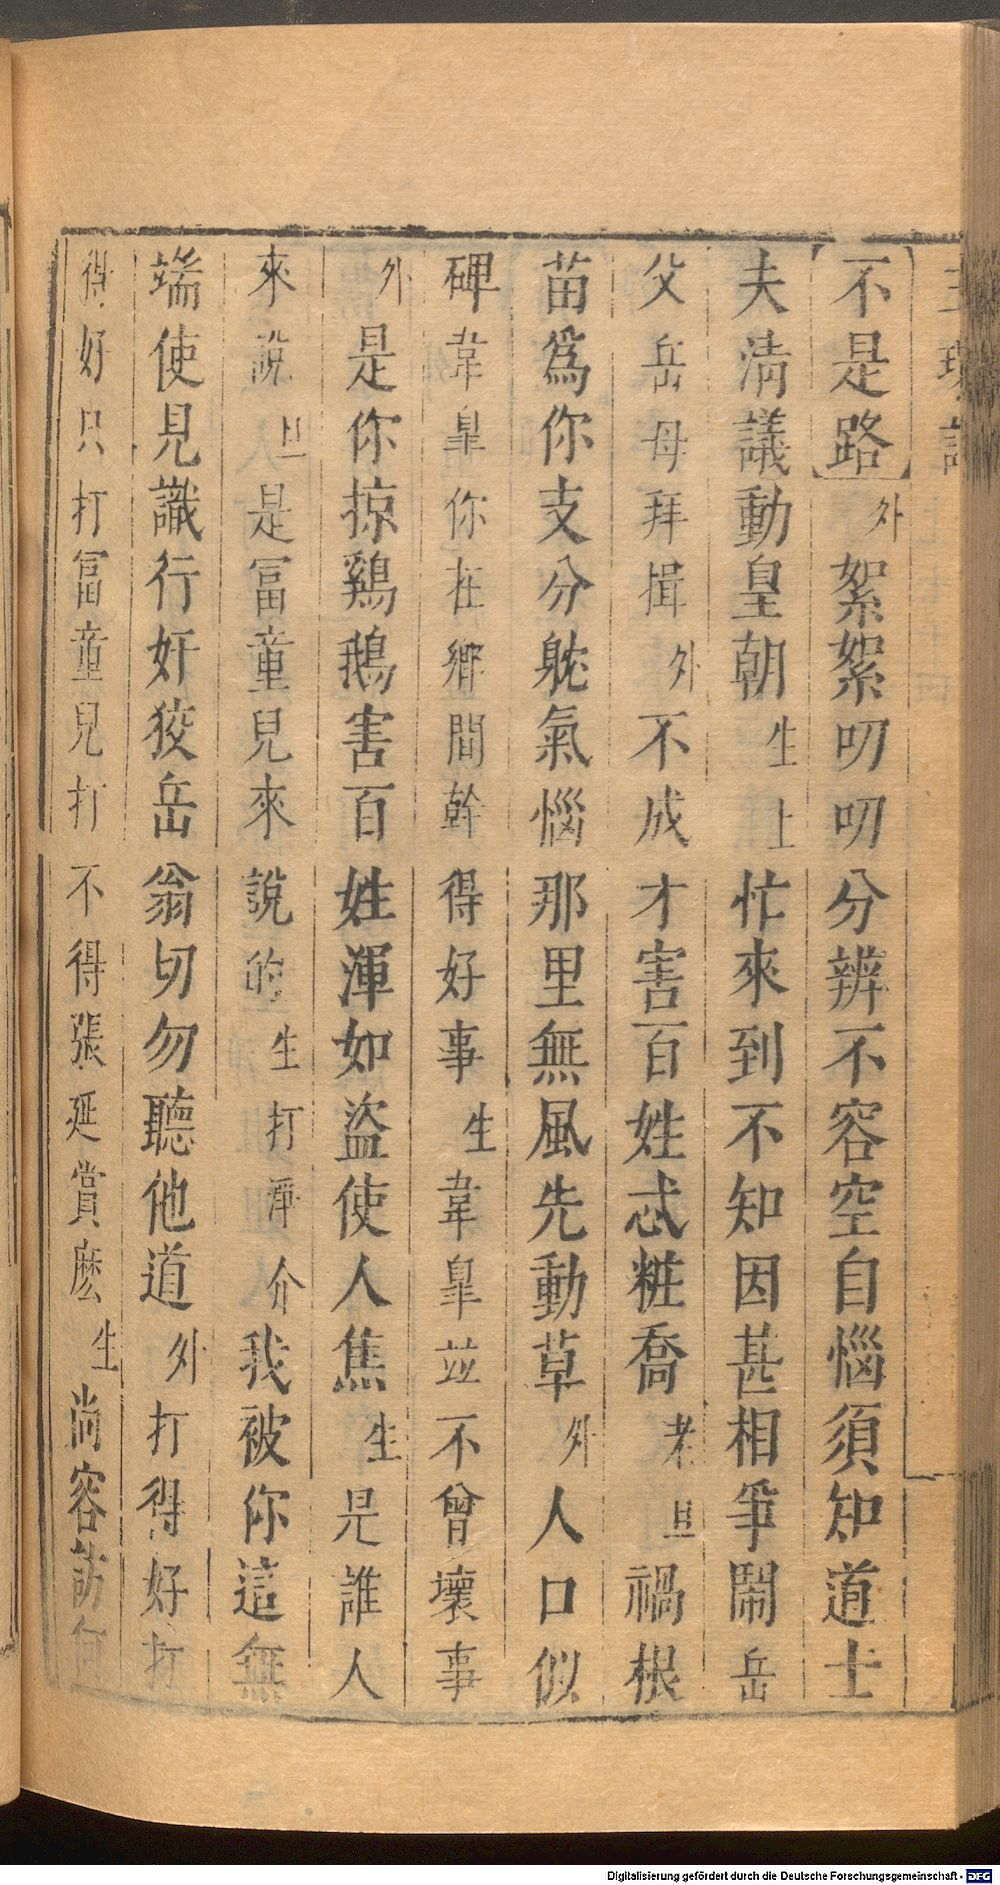 不是路外絮絮叨叨分辨不容空自惱須知道士
夫清議動皇朝生上忙來到不知因甚相爭鬧岳
父岳母拜揖外不成才害百姓忒粧喬老旦禍根
苗爲你支分躭氣惱那里無風先動草外人口似
碑韋皐你在鄉間幹得好事生韋皐並不曾壞事
外是你掠鷄鵝害百姓渾如盜使人焦生是誰人
來說旦是冨童兒來說的生打淨介我被你這無
端使見識行奸狡岳翁切勿聽他道外打得好打
得好只打冨童兒打不得張延賞麽生尚容訪
Digitalisierung gefördert durch die Deutsche Forschungsgemeinschaft - DFG